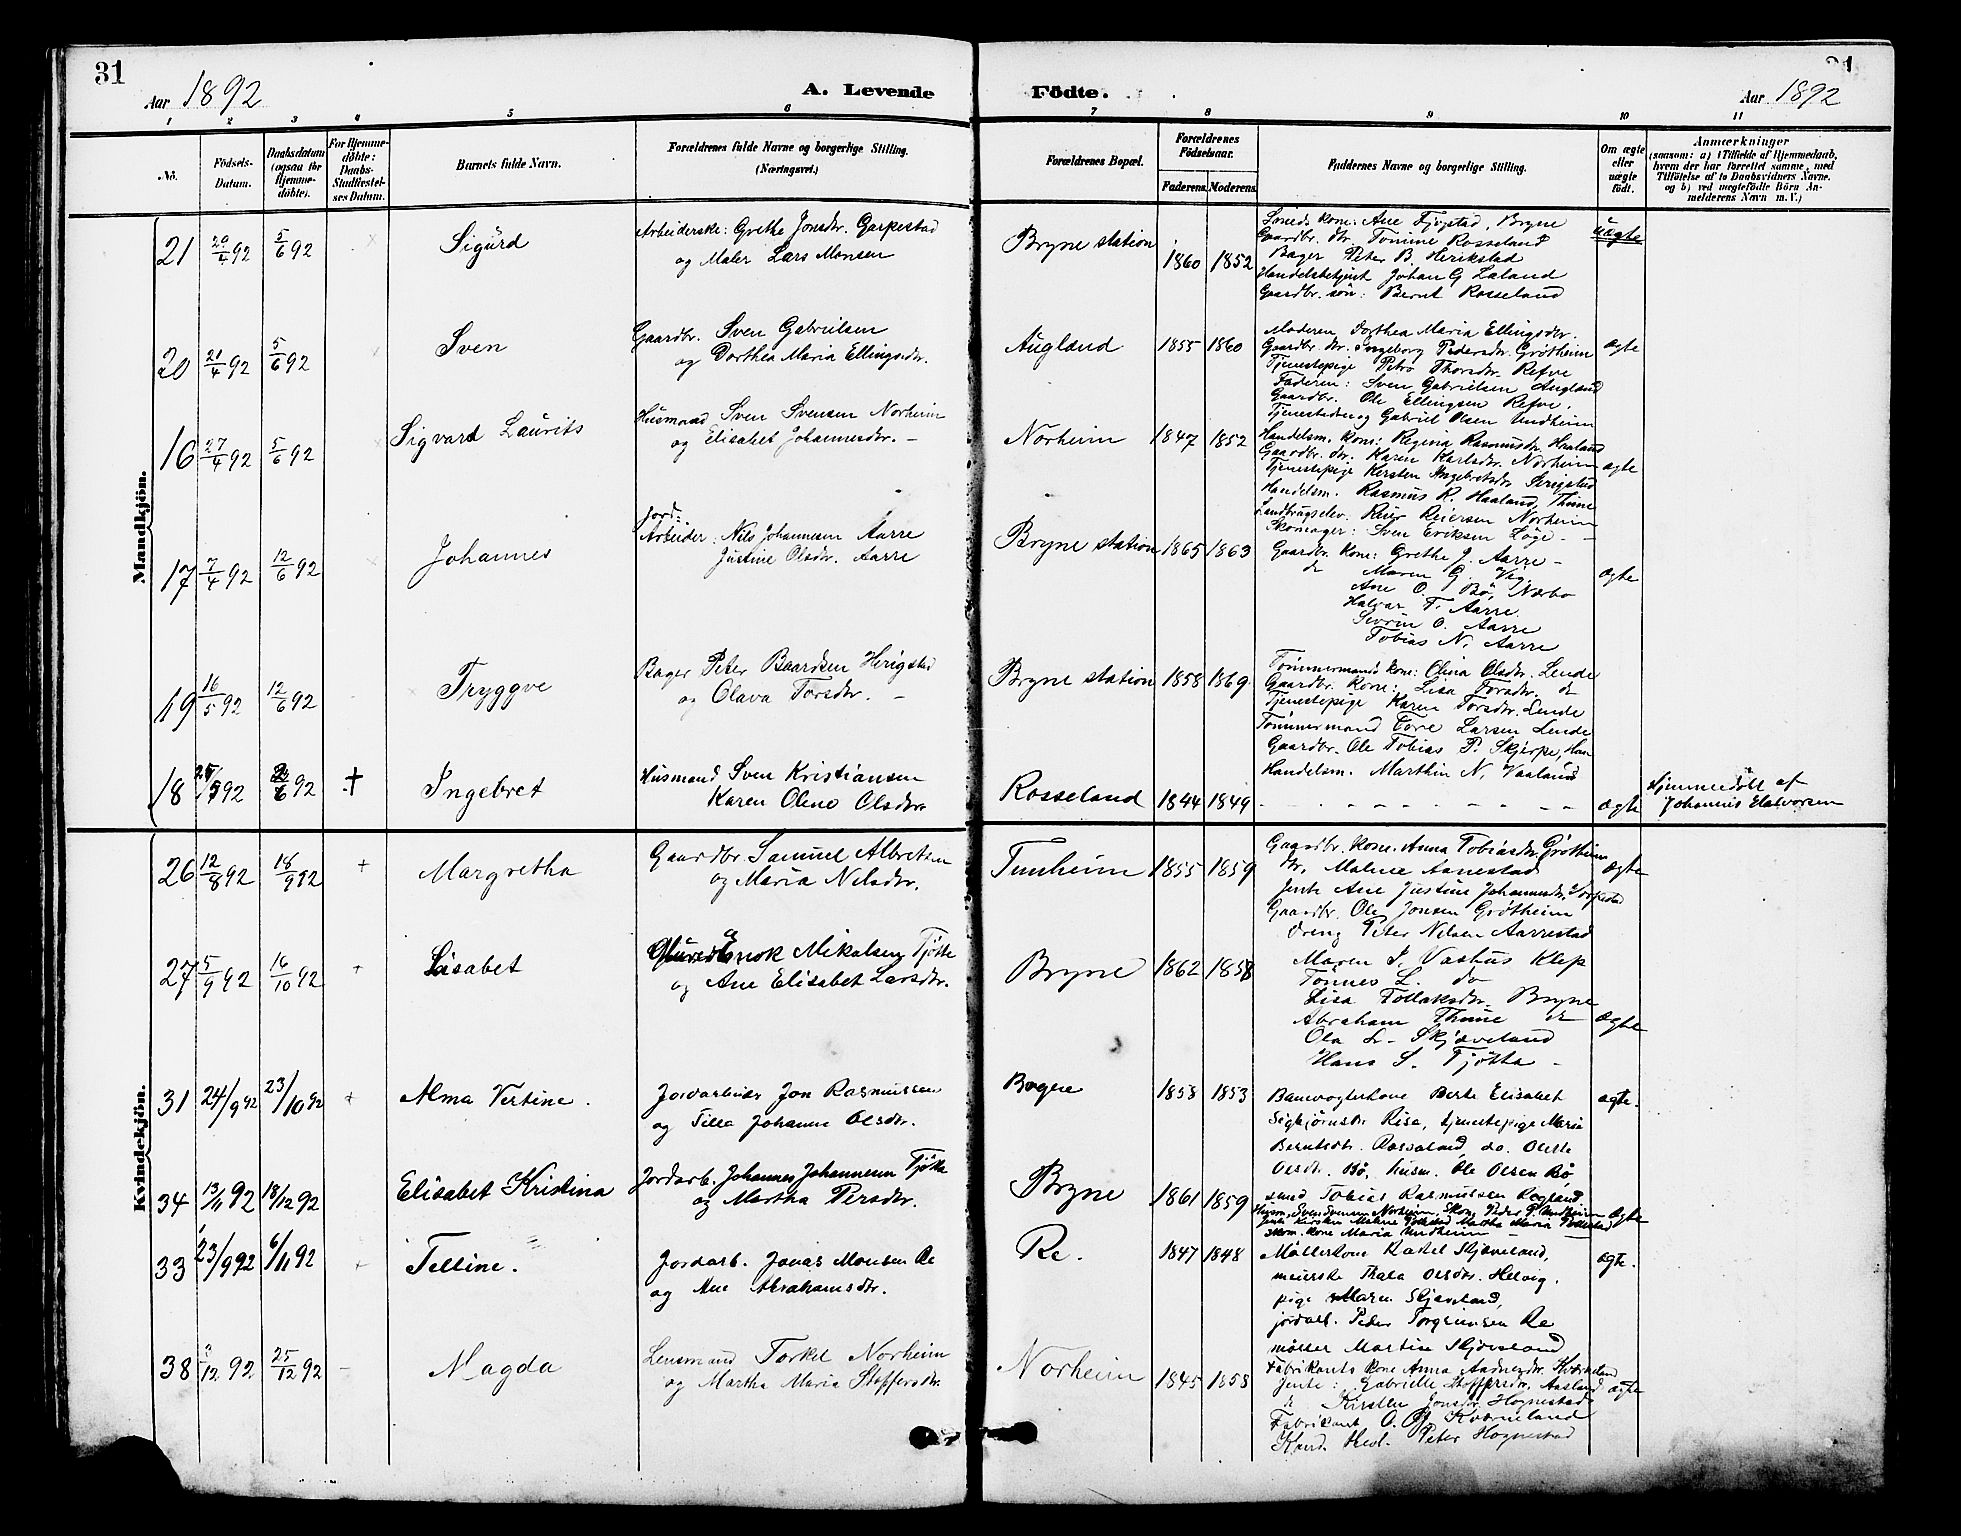 31
Aar 1892
A. Levende
Fødte.
Aar 1892
1 2 3 4 5 6 7 8 9 10 11
No.
Fødsels-Datum.
Daabsdatum (ogsaa for Hjemmedøbte).
For Hjemmedøbte: Daabs-Stadfæstelses Datum.
Barnets fulde Navn.
Forældrenes fulde Navne og borgerlige Stilling. (Næringsvei.)
Forældrenes Bopæl.
Forældrenes Fødselsaar.
Faderens. Moderens.
Faddernes Navne og borgerlige Stilling.
Om ægte eller uægte født.
Anmærkninger
(saasom: a) i Tilfælde af Hjemmedaab, hvem der har forrettet samme, med Tilføielse af to Daabsvidners Navne, og b) ved uægtefødte Børn Anmelderens Navn m. V.)
Mandkjøn.
21 20/4 92 5/6 92 Sigurd
Arbeiderske: Grethe Jonsdr. Garpestad
og Maler Lars Monsen
Bryne station 1860 1852
Smeds kone: Ane Fjogstad, Bryne
Gaardbr. dtr. Tomine Rosseland
Bager Peter B. Herikstad
Handelsbetjent Johan G Laland
Gaardbr. søn: Bernt Rosseland
uægte
20 21/4 92 5/6 92 Sven
Gaardbr. Sven Gabrielsen
og Dorthea Maria Ellingsdr.
Augland 1855 1860
Moderen Dorthea Maria Ellingsdr.
Gaardbr. dtr. Ingeborg Pedersdr. Grøtheim
Tjenestepige Petra Thorsdr. Refve
Faderen: Sven Gabrielsen Augland
Gaardbr. Ole Ellingsen Refve,
Tjenestedreng Gabriel Olsen Undheim
ægte
16 27/4 92 5/6 92 Sigvard Laurits
Husmand Sven Svensen Norheim
og Elisabet Johannesdr. –
Norheim 1847 1852
Handelsm. kone: Regina Rasmusdr. Haaland
Gaardbr. dtr. Karen Karlsdr. Norheim
Tjenestepige Kersten Ingebretsdr.
Handelsm. Rasmus R. Haaland, Thime
Reier Reiersen Norheim
Skomager: Sven Eriksen Løge –
ægte
17 7/4 92 12/6 92 Johannes
Jord.
Arbeider: Nils Johannesen Aarre
Justine Olsdr. Aarre
Bryne station 1865 1863
Gaardbr. kone: Grethe J. Aarre –
do Maren G. Vig,
Ane O. Bø, Nærbø
Halvar T. Aarre
Sevrin O. Aarre
Tobias N. Aarre
ægte
19 16/5 92 12/6 92 Tryggve
Bager Peter Baardsen Herigstad
og Olava Torsdtr. –
Bryne station 1858 1869
Tømmermands kone: Olina Olsdtr. Lende
Gaardbr. kone: Lisa Torsdtr. do
Tjenestepige Karen Torsdtr. Lende
Tømmermand Tore Larsen Lende
Gaardbr. Ole Tobias P. Skjerpe, Haa
Handelsm. Marthin N. Vaaland
18 25/5 92 /6 92 + Ingebret
Husmand Sven Kristiansen
Karen Oline Olsdtr.
Rosseland 1844 1849
– – – – – – – –
ægte
Hjemmedøbt af
Johannes Halvorsen
Kvindekjøn.
26 12/8 92 18/9 92 + Margretha
Gaardbr. Samuel Albretsen
og Maria Nilsdtr.
Tunheim 1855 1859
Gaardbr. kone. Anna Tobiasdr. Grøtheim
dtr. Malene Aanestad
Jente Ane Justine Johannesdr.
Gaardbr. Ole Jonsen Grøtheim
Dreng Peter Nilsen Aarrestad
ægte
27 5/9 92 16/10 92 + Lisabet
Enok Mikalsen Tjøtte
og Ane Elisabet Larsdtr.
Bryne 1862 1858
Maren J. Vashus Klep
Tønnes L. do
Lisa Tollaksdtr. Bryne
Abraham Thime
Ola L. Skjæveland
Hans S. Tjøtta –
ægte
31 24/9 92 23/10 92 + Alma Vertine.
Jordarbeider Jon Rasmussen
og Tilla Johanne Olsdtr.
Bryne 1853 1853
Banevogterkone Berte Elisabet
Sigbjørnsdtr. Risa, tjenestepige Maria
Berntsdtr. Rosseland, do. Oleste
Olsdtr. Bø, husm. Ole Olsen Bø,
smed Tobias Rasmussen Rogland
ægte.
34 13/11 92 18/12 92 Elisabet Kristina
Jordarb. Johannes Johannesen Tjøtta
og Martha Persdtr.
Bryne 1861 1859
Husm. Sven Svensen Norheim, Skom. Peder P. Undheim
Jente Kirsten Malene Martha Maria
Skom. kone Maria Undheim
ægte
33 23/9 92 6/11 92 + Telline.
Jordarb. Jonas Monsen Re
og Ane Abrahamsdtr.
Re. 1847 1848
Møllerkone Rakel Skjæveland,
meierske Thala Olsdtr. Helvig,
pige Maren Skjæveland,
jordarb. Peder Torgrimsen Re
møller Martin Skjæveland
ægte.
38 /12 92 25/12 92 – Magda
Lensmand Torkel Norheim
og Martha Maria Stoffersdtr.
Norheim 1845 1858
Fabrikants kone Anna Aadnesdtr. Kværneland
Jente: Gabrielle Stoffersdr. Aasland
do Kirsten Jonsdtr. Hognestad
Fabrikant O. G. Kværneland
Kand. theol. Peter Hognestad
ægte